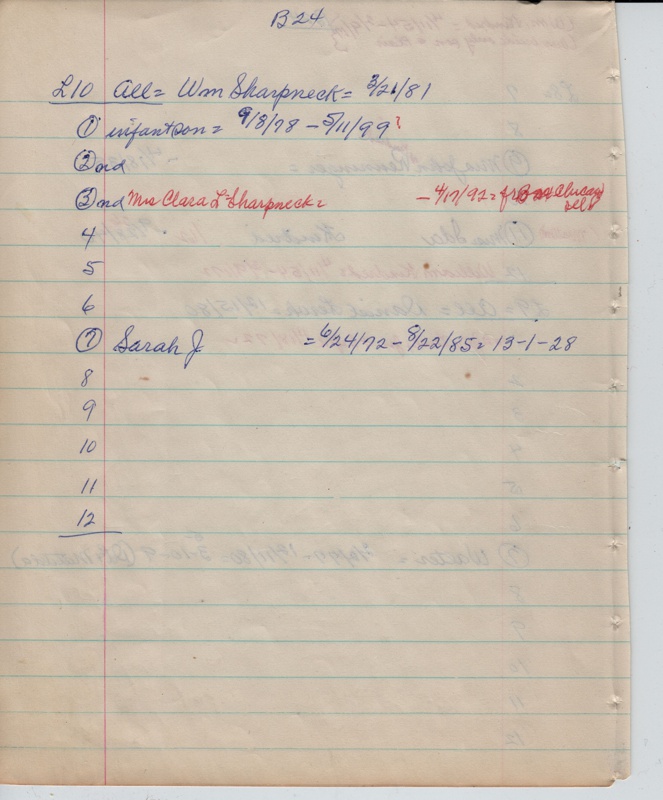 B24
L10 All = Wm Sharpneck = 3/21/81
① infant son = 9/8/78 - 5/11/99?
② nd
③ nd Mrs Clara L. Sharpneck = - 4/17/92 =
4
5
6
⑦ Sarah J = 6/24/72 - 8/22/85 = 13-1-28
8
9
10
11
12